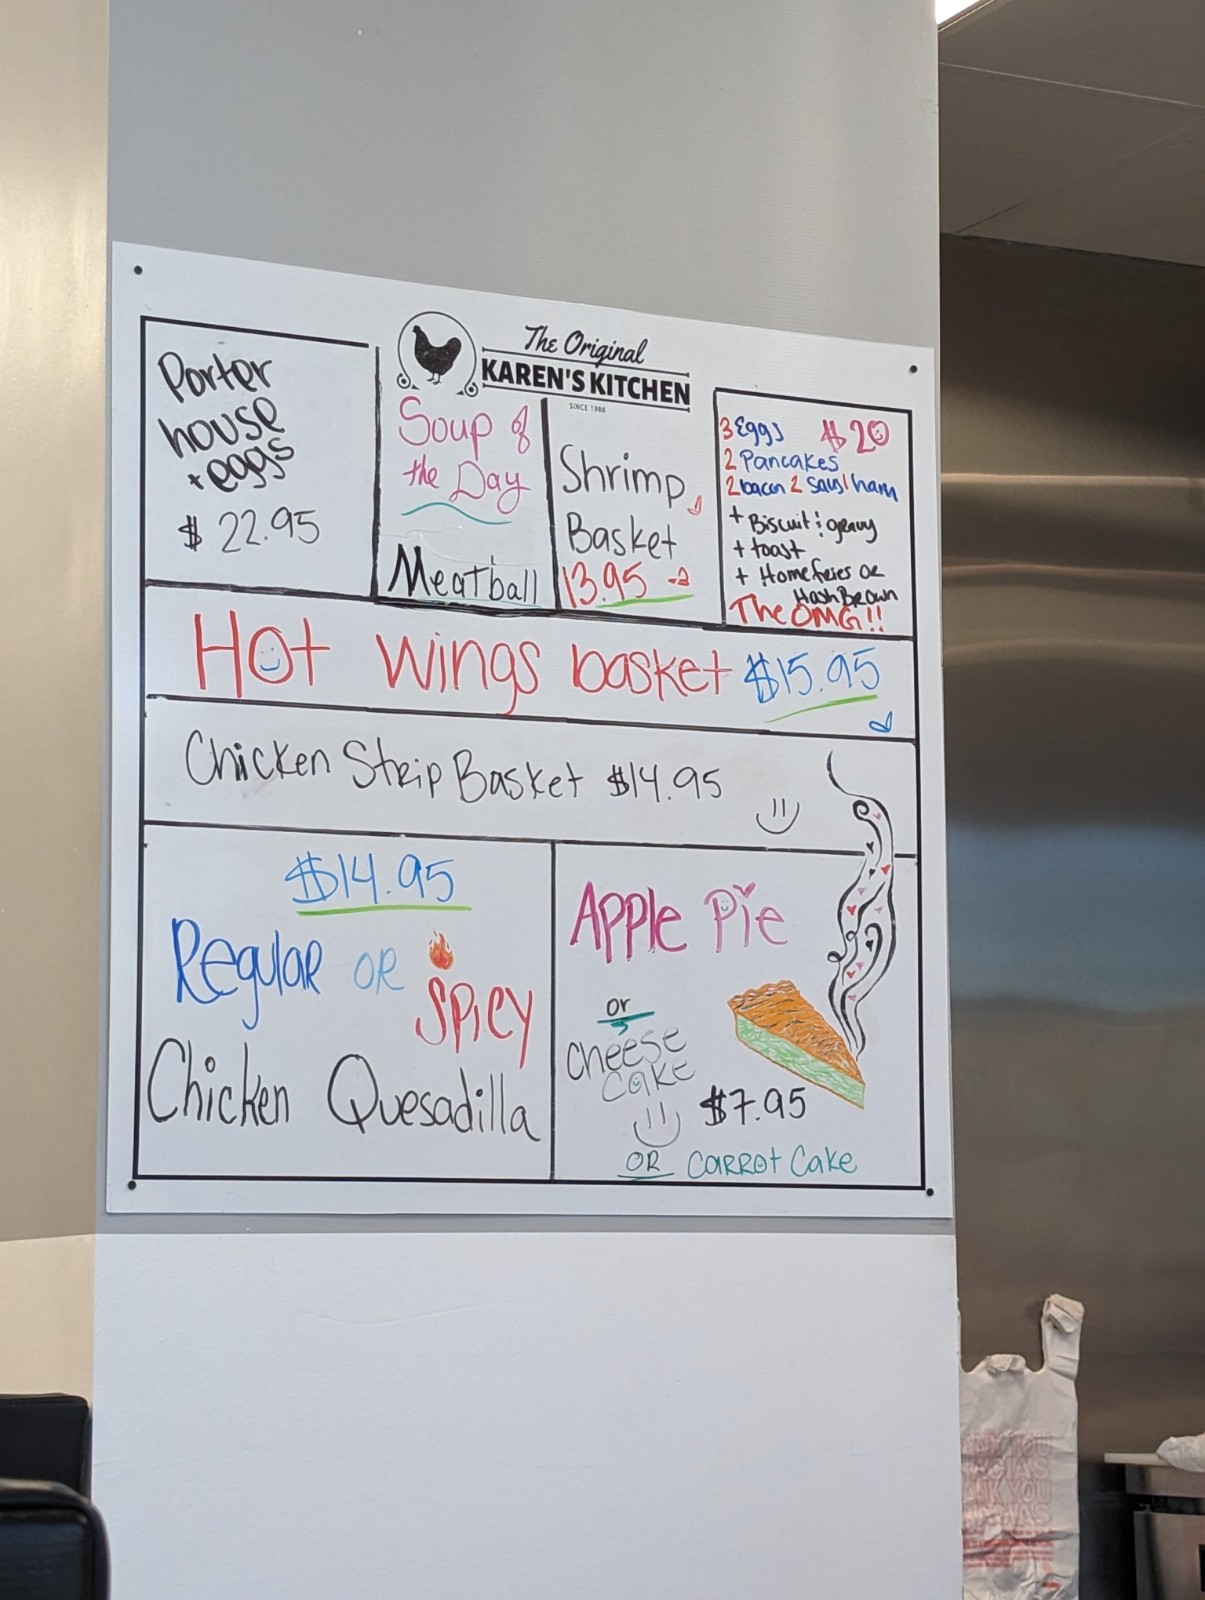 The Original
KAREN'S KITCHEN
SINCE 1988
Porter
house
+ eggs
$ 22.95
Soup of
the Day
Meatball
Shrimp
Basket
13.95
3 Eggs $20
2 Pancakes
2 bacon 2 saus 1 ham
+ Biscuit & gravy
+ toast
+ Homefries OR
HashBrown
The OMG!!
Hot wings basket $15.95
Chicken Strip Basket $14.95
$14.95
Regular OR
SPICY
Chicken Quesadilla
Apple Pie
or
Cheese
Cake
$7.95
OR Carrot Cake